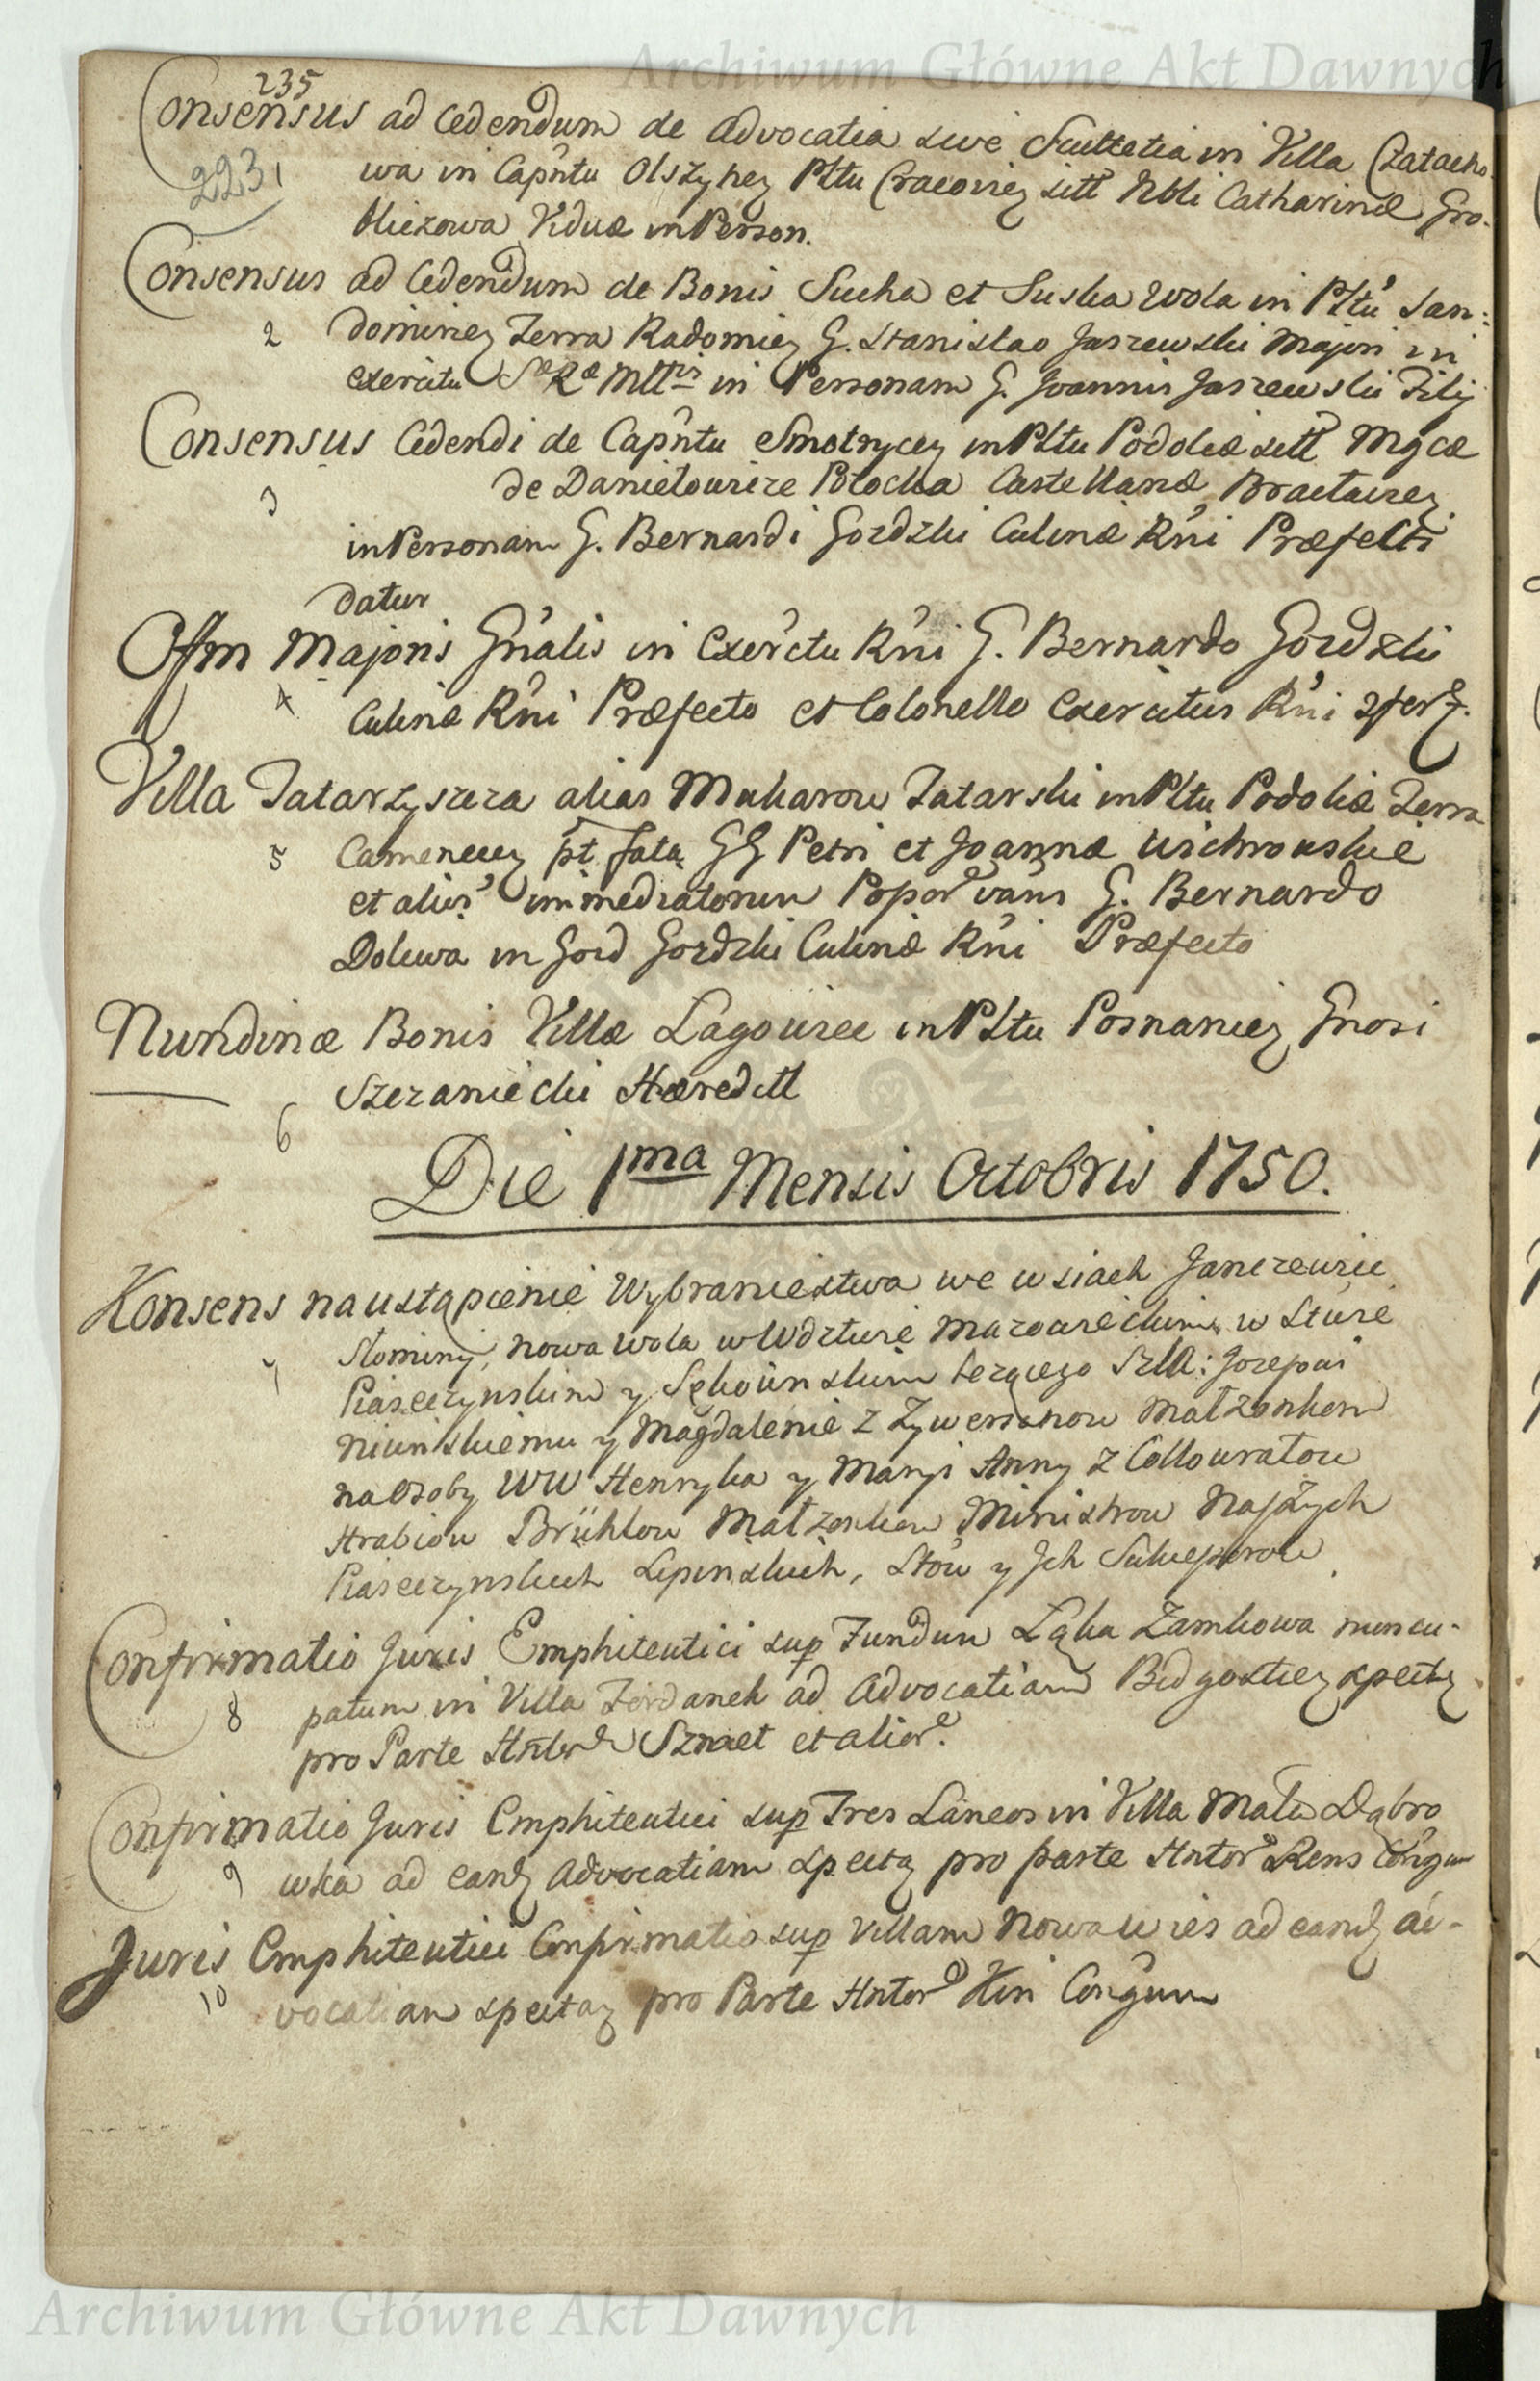 Archiwum Główne Akt Dawnych
235
Consensus ad Cedendum de Advocatia sive Scultetia in Villa Czatacho
223 1
wa in Capntu Olsztynen Pltu Cracovien sitt Nbli Catharinæ Gro-
blickowa Viduæ in Person.
Consensus ad Cedendum de Bonis Sucha et Suska Wola in Pltu San:
2 domirien Terra Radomien G. Stanislao Jaszewski Majori in
exercitu Sæ Ræ Mttis in Personam G. Joannis Jaszewski Filij
Consensus Cedendi de Capntu Smotrycen in Pltu Podoliæ sitt Mgcæ
3 de Daniełowicze Potocka Castellanæ Braclawien
in Personam G. Bernardi Gozdzki Culinæ Rni Præfecti
datur
Offm Majoris Gnalis in Exerctu Rni G. Bernardo Gozdzki
4 Culinæ Rni Præfecto et Colonello Exercitus Rni
Villa Tatarzyszcza alias Makarow Tatarski in Pltu Podoliæ Terra
5 Camenecen pt fata GG Petri et Joannæ Wichrowskie
et alior immediatorum Popor vans G. Bernardo
Doliwa in Gozd Gozdzki Culinæ Rni Præfecto
Nundinæ Bonis Villæ Łagowiec in Pltu Posnanien Gnosi
6 Szczaniecki Hæreditt
Die 1ma Mensis Octobris 1750.
Konsens na ustąpienie Wybraniectwa we wsiach Janczewice
7 Słominy, Nowa Wola w Wdztwie Mazowieckim w Stwie
Piaseczynskim y Sękocinskim lezącego Szla: Jozefowi
Niwinskiemu y Magdalenie z Zywertanow Małzonkom
na Osoby WW Henryka y Maryi Anny z Collowratow
Hrabiow Brühlow Małzonkow Ministrow Najszych
Piaseczynskich Lipinskich, Stow y Jch Sukcessorow
Confirmatio Juris Emphiteutici sup Fundum Łąka Zamkowa nuncu-
8 patum in Villa Zerdanek ad Advocatiam Bidgostien spectą
pro Parte Hntor Szmel et alior.
Confirmatio Juris Emphiteutici sup Tres Laneos in Villa Mała Dąbro
9 wka ad eand Advocatiam spectą pro parte Hntor Rens Congum
Juris Emphiteutici Confirmatio sup Villam Nowawies ad eand ad-
10 vocatiam spectaą pro Parte Hntor Kin Congum
Archiwum Główne Akt Dawnych